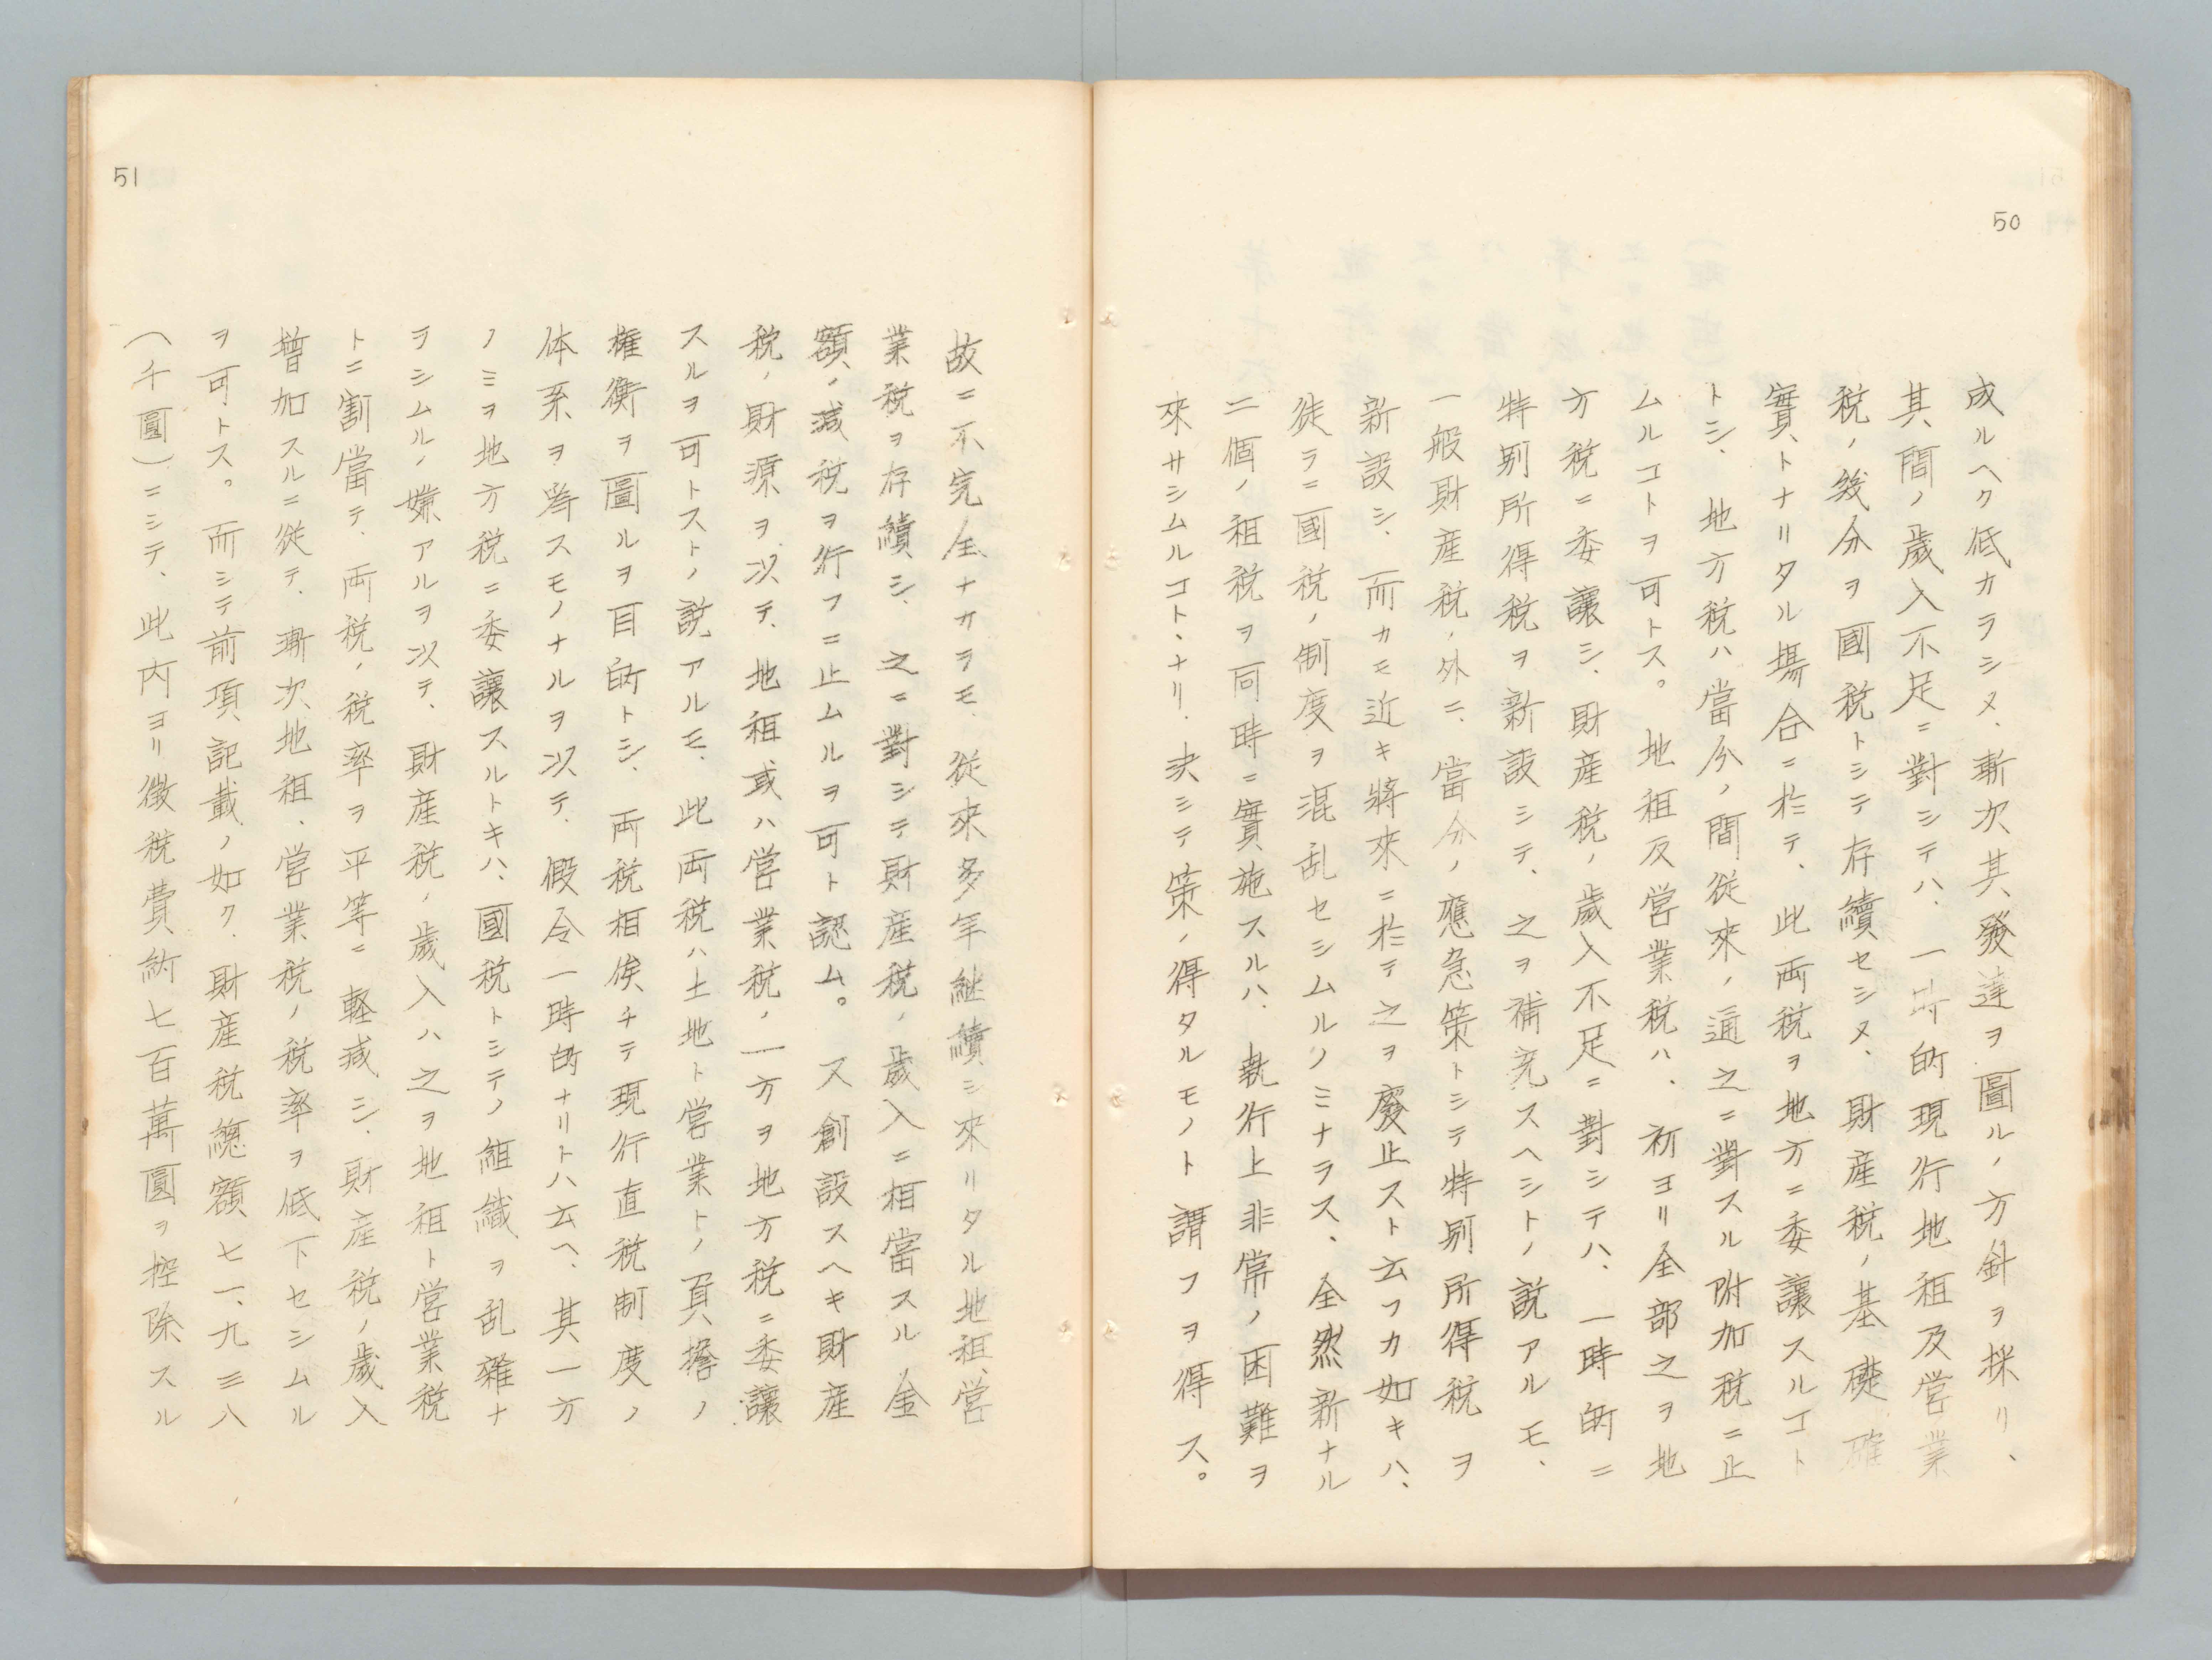 50
成ルヘク低カラシメ、漸次其發達ヲ圖ルノ方針ヲ採リ、
其間ノ歲入不足ニ對シテハ、一時的現行地租及営業
税ノ幾分ヲ國税トシテ存續セシメ、財産税ノ基礎確
實トナリタル場合ニ於テ、此両税ヲ地方ニ委讓スルコト
トシ、地方税ハ當分ノ間從來ノ通之ニ對スル附加税ニ止
ムルコトヲ可トス。地租及営業税ハ、初ヨリ全部之ヲ地
方税ニ委讓シ、財産税ノ歲入不足ニ對シテハ、一時的ニ
特別所得税ヲ新設シテ、之ヲ補充スヘシトノ説アルモ、
一般財産税ノ外ニ、當分ノ應急策トシテ特別所得税ヲ
新設シ、而カモ近キ將來ニ於テ之ヲ廢止スト云フカ如キハ、
徒ラニ國税ノ制度ヲ混乱セシムルノミナラス、全然新ナル
二個ノ租税ヲ同時ニ實施スルハ、執行上非常ノ困難ヲ
來サシムルコトヽナリ、決シテ策ノ得タルモノト謂フヲ得ス。
51
故ニ不完全ナカラモ、從來多年継續シ來リタル地租、営
業税ヲ存續シ、之ニ對シテ財産税ノ歲入ニ相當スル金
額ノ減税ヲ行フニ止ムルヲ可ト認ム。又創設スヘキ財産
税ノ財源ヲ以テ、地租或ハ営業税ノ一方ヲ地方税ニ委讓
スルヲ可トストノ説アルモ、此両税ハ土地ト営業トノ負擔ノ
権衡ヲ圖ルヲ目的トシ、両税相俟チテ現行直税制度ノ
体系ヲ爲スモノナルヲ以テ、假令一時的ナリトハ云ヘ、其一方
ノミヲ地方税ニ委讓スルトキハ、國税トシテノ組織ヲ乱雜ナ
ラシムルノ嫌アルヲ以テ、財産税ノ歲入ハ之ヲ地租ト営業税
トニ割當テ、両税ノ税率ヲ平等ニ軽减シ、財産税ノ歲入
増加スルニ從テ、漸次地租、営業税ノ税率ヲ低下セシムル
ヲ可トス。而シテ前項記載ノ如ク、財産税總額七一、九三八
(千圓)ニシテ、此内ヨリ徴税費約七百萬圓ヲ控除スル